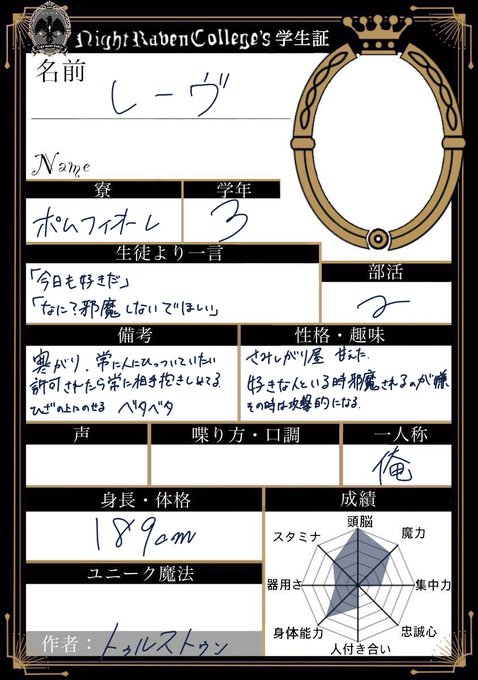 Night Raven College's 学生証
名前
レーヴ
Name
寮
学年
ポムフィオーレ
3
生徒より一言
「今日も好きだ」
「なに？邪魔しないでほしい」
部活
備考
寒がり、常に人にひっついていたい
許可されたら常に相手抱きしめてる
ひざの上にのせる ベタベタ
性格・趣味
さみしがり屋 甘えた
好きな人といる時邪魔されるのが嫌
その時は攻撃的になる
声
喋り方・口調
一人称
俺
身長・体格
189cm
成績
頭脳
魔力
集中力
忠誠心
人付き合い
身体能力
器用さ
スタミナ
ユニーク魔法
作者：トゥルストゥン